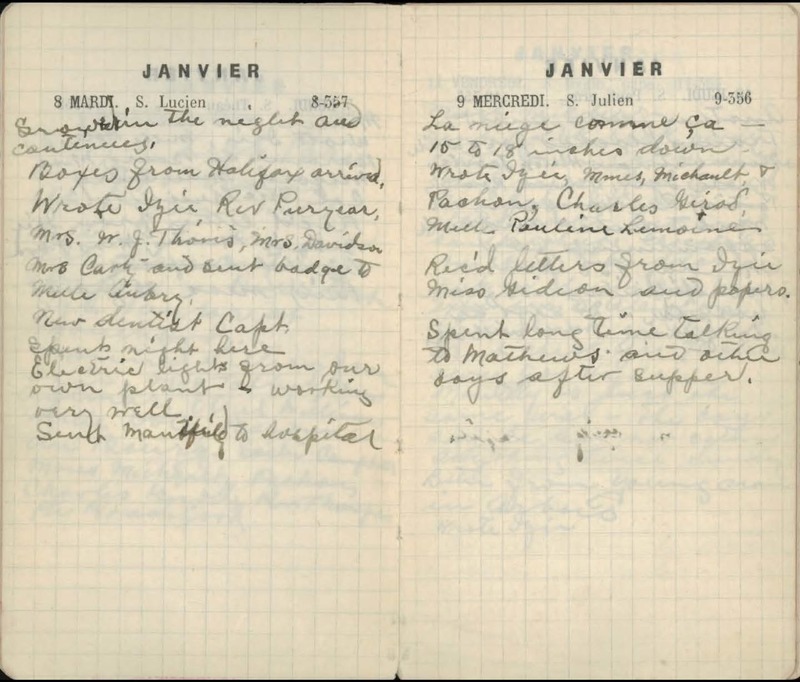 JANVIER
8 MARDI. S. Lucien 8-357
in the neght and
continues.
Boxes from Halifax arrived,
Wrote Izie, Rev Puryear,
Mrs. W. J. Thoris, Mrs. Davidson
Mrs and sent badge to
Melle Aubry.
New dentist Capt
Spent night here
Electric lights from our
own plant - working
very well.
Sent to hospital
JANVIER
9 MERCREDI. S. Julien 9-356
La niege comme ça —
15 to 18 inches down
Wrote Izie, Mmes, Michault, &
Pachon, Charles Girod,
Melle Pauline Lemoine
Rec'd letters from Izie
Miss Gideon and papers.
Spent long time talking
to Mathews and other
boys after supper.